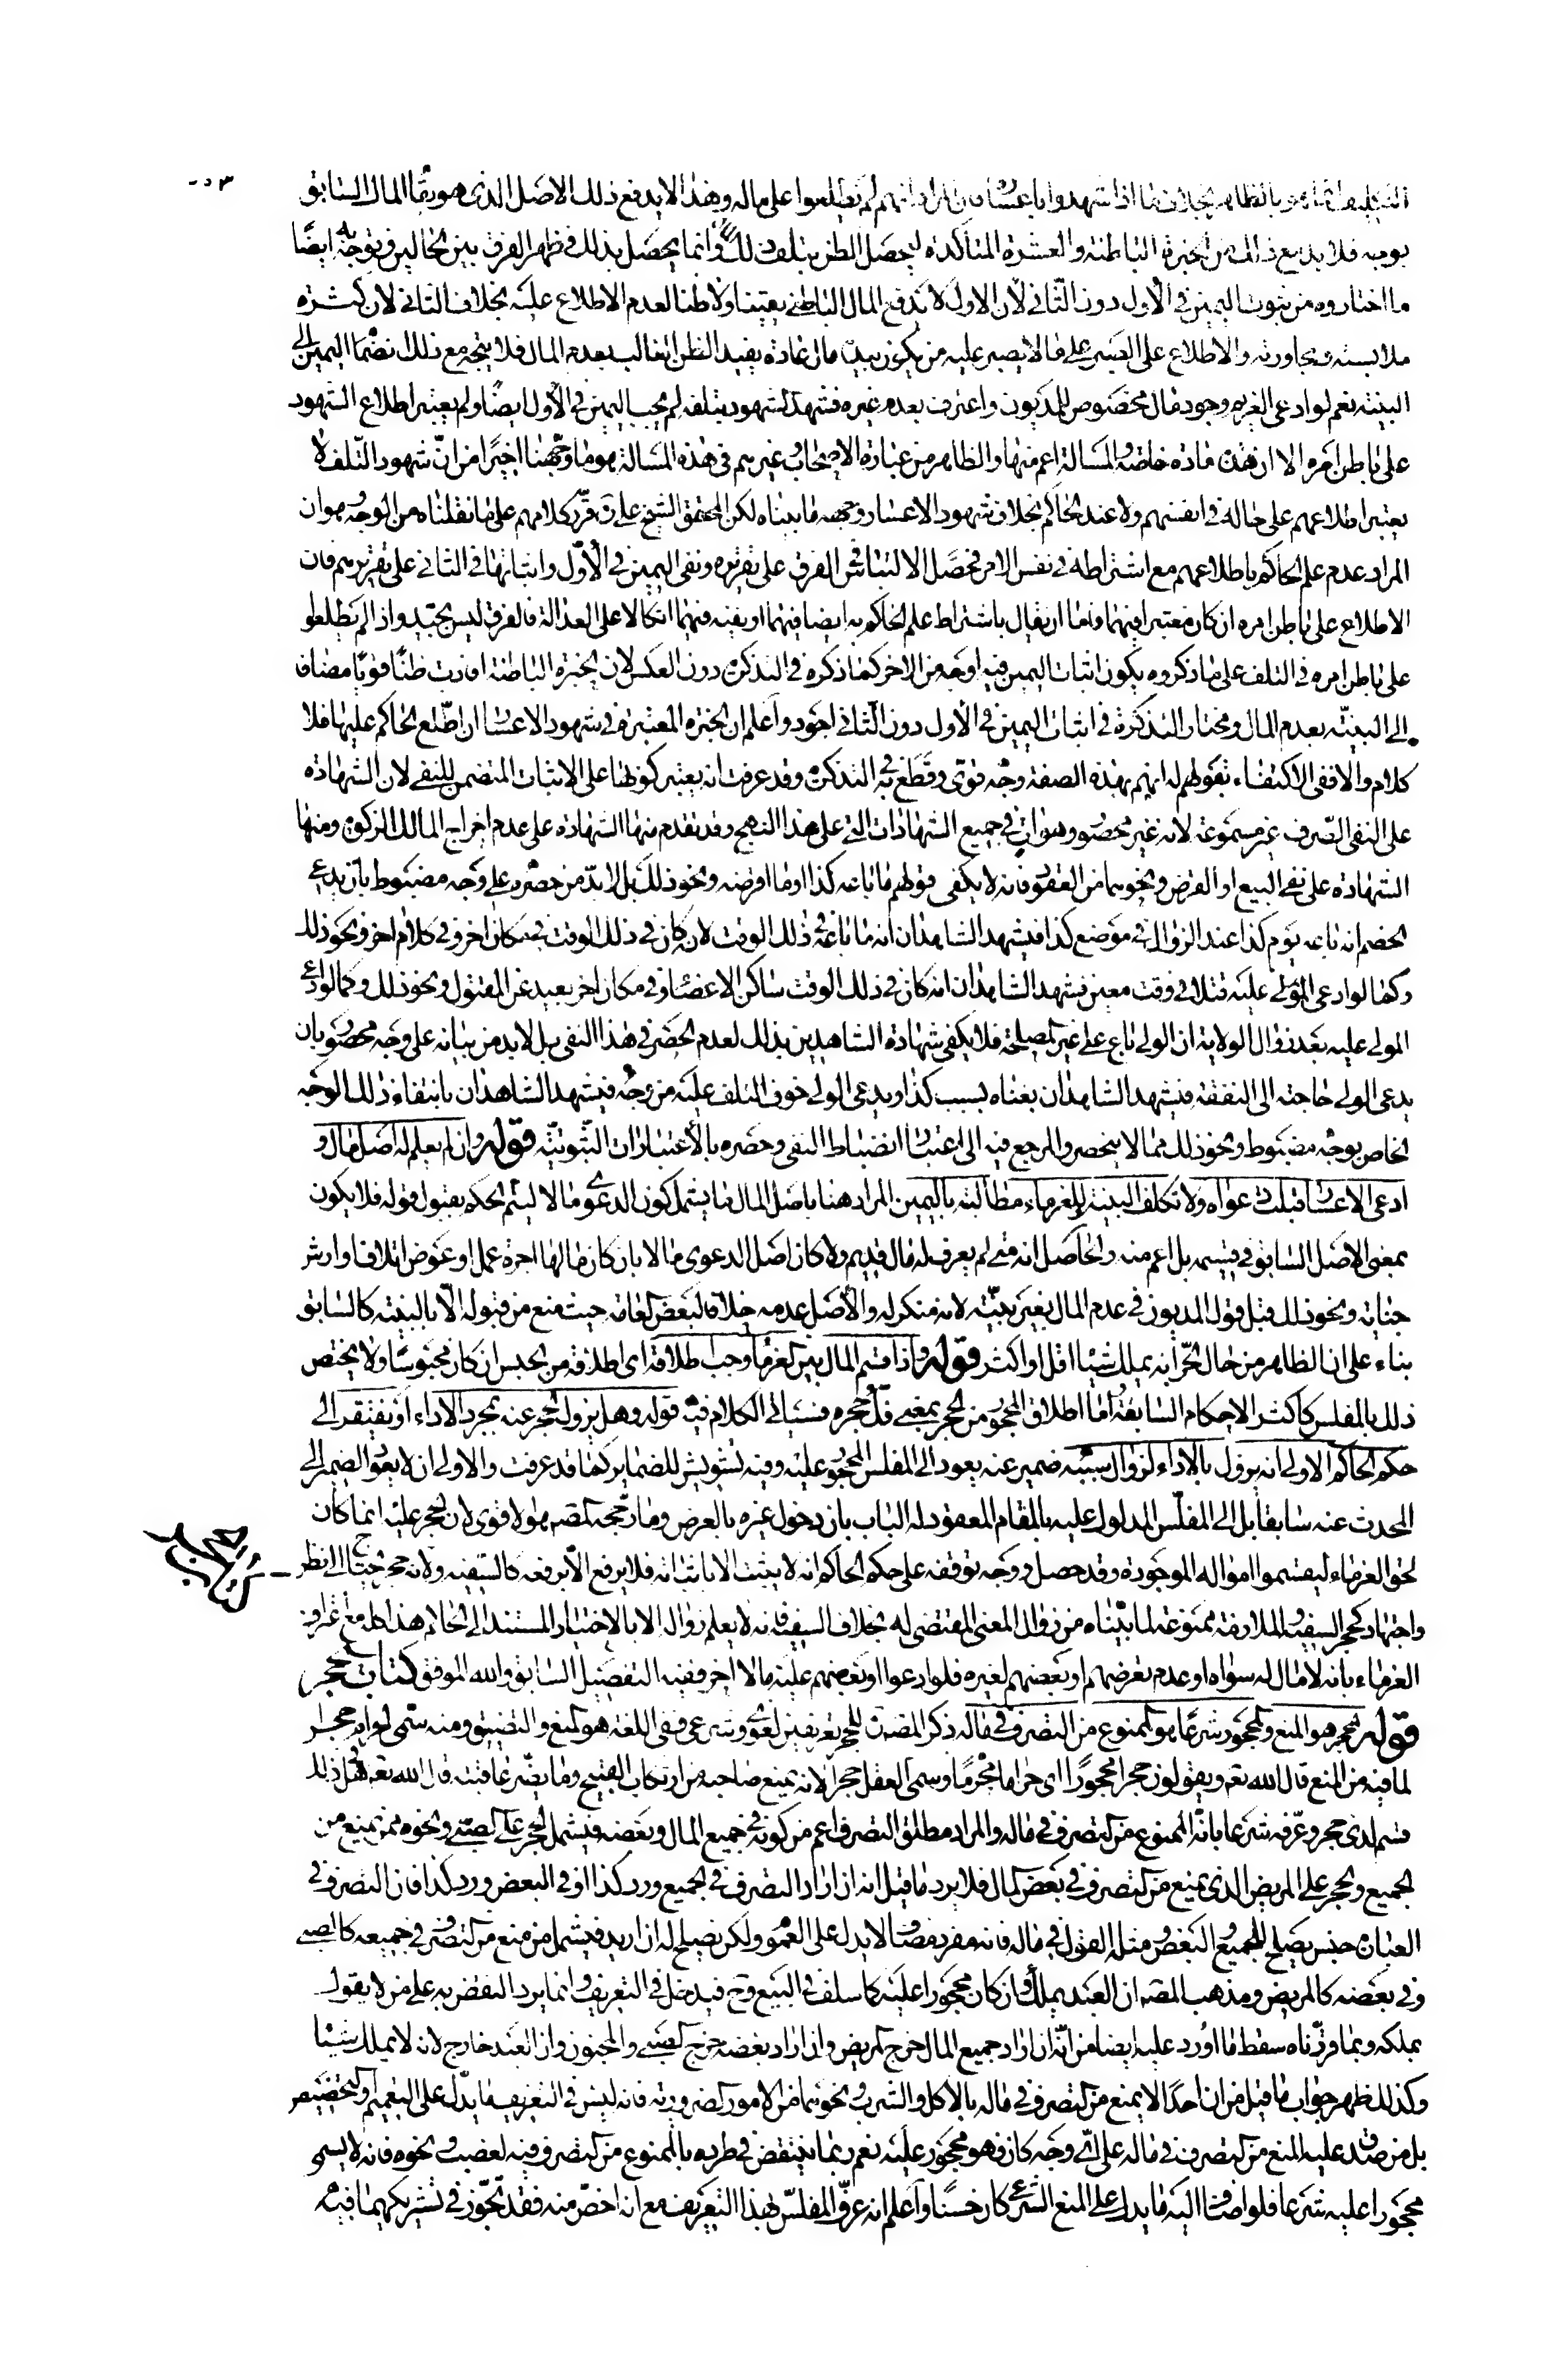 بخلاف ما اذا شهدوا باعساره فان المراد انهم لم يطلعوا على ماله وهذا لا يدفع ذلك الاصل الذى هو بقاء المال السابق
بوجه فلا بد مع ذلك من الخبرة الباطنة والعشرة المتاكدة ليحصل الظن بتلف ذلك وانما يحصل بذلك فظهر الفرق بين الحالين وتوجه ايضا
ما اختاروه من ثبوت اليمين فى الاول دون الثانى لان الاول لا يدفع المال الباطنى يقينا ولا ظنا لعدم الاطلاع عليه بخلاف الثانى لان كثرة
ملابسته ومجاورته والاطلاع على الصبر على ما لا يصبر عليه من يكون بيده مال عادة يفيد الظن الغالب بعدم المال فلا يتجه مع ذلك ضم اليمين الى
البينة نعم لو ادعى الغريم وجود مال مخصوص للمديون واعترف بعدم غيره فشهد الشهود بتلفه لم يجب اليمين فى الاول ايضا ولم يعتبر اطلاع الشهود
على باطن امره الا ان هذه مادة خاصة والمسالة اعم منها والظاهر من عبارة الاصحاب وغيرهم فى هذه المسالة هو ما وجهنا اخيرا من ان شهود التلف لا
يعتبر اطلاعهم على حاله فى انفسهم ولا عند الحاكم بخلاف شهود الاعسار ووجهه ما بيناه لكن المحقق الشيخ على ره قرر كلامهم على ما نقلناه من الوجه وهو ان
المراد عدم علم الحاكم باطلاعهم مع اشتراطه فى نفس الامر فحصل الالتباس فى الفرق على تقريره ونفى اليمين فى الاول واثباتها فى الثانى على تقريرهم فان
الاطلاع على باطن امره ان كان معتبرا فيهما فاما ان يقال باشتراط علم الحاكم به ايضا فيهما او بقيه فيهما اتكالا على العدالة فالفرق ليس بجيد واذا لم يطلعوا
على باطن امره فى التلف على ما ذكروه يكون اثبات اليمين فيه اوجه من الاخر كما ذكره فى التذكرة دون العكس لان الخبرة الباطنة افادت ظنا قويا مضافا
الى البينة بعدم المال ومختار التذكرة فى اثبات اليمين فى الاول دون الثانى اجود واعلم ان الخبرة المعتبرة فى شهود الاعسار ان اطلع الحاكم عليها فلا
كلام والا ففى الاكتفاء بقولهم له انهم بهذه الصفة وجه قوى وقطع به فى التذكرة وقد عرفت انه يعتبر كونها على الاثبات المتضمن للنفى لان الشهادة
على النفى الصرف غير مسموعة لانه غير محصور وهو ات فى جميع الشهادات التى على هذا النهج وقد تقدم منها الشهادة على عدم اخراج المالك الزكوة ومنها
الشهادة على نفى البيع او القرض ونحوهما من العقود فانه لا يكفى قولهم ما باعه كذا او ما اقرضه ونحو ذلك بل لا بد من حصره على وجه مضبوط بان يدعى
الخصم انه باعه يوم كذا عند الزوال فى موضع كذا فيشهد الشاهدان انه ما باعه فى ذلك الوقت لانه كان فى ذلك الوقت فى مكان اخر وفى كلام اخر ونحو ذلك
وكما لو ادعى المولى عليه قتلا فى وقت معين فشهد الشاهدان انه كان فى ذلك الوقت ساكن الاعضاء او فى مكان اخر بعيد عن المقتول ونحو ذلك وكما لو ادعى
المولى عليه بعد زوال الولاية ان الولى باع على غير المصلحة فلا يكفى شهادة الشاهدين بذلك لعدم الحصر فى هذا النفى بل لا بد من بيانه على وجه محصور بان
يدعى الولى حاجته الى النفقة فيشهد الشاهدان بغناه بسبب كذا ويدعى الولى خوف التلف عليه من وجه فيشهد الشاهدان بانتفاء ذلك الوجه
الخاص بوجه مضبوط ونحو ذلك مما لا ينحصر والمرجع فيه الى اعتبار انضباط النفى وحصره بالاعتبارات الثبوتية قوله وان لم يعلم له اصل مال و
ادعى الاعسار قبلت دعواه ولا تكلف البينة وللغرماء مطالبته باليمين المراد هنا باصل المال ما يشمل كون الدعوى مالا ليتم الحكم بقبول قوله فلا يكون
بمعنى الاصل السابق فى قسيمه بل اعم منه والحاصل انه متى لم يعرف له مال قديم ولا كان اصل الدعوى مالا بان كان مالها اجرة عمل او عوض اتلاف او ارش
جناية ونحو ذلك قبل قول المديون فى عدم المال بغير بينة لانه منكر له والاصل عدمه خلافا لبعض العامة حيث منع من قبوله الا بالبينة كالسابق
بناء على ان الظاهر من حال الحر انه يملك شيئا اقل او اكثر قوله واذا قسم المال بين الغرماء وجب اطلاقه اى اطلاقه من الحبس ان كان محبوسا ولا يختص
ذلك بالمفلس كاكثر الاحكام السابقة اما اطلاق المحجور من الحجر بمعنى فك حجره فسياتى الكلام فيه قوله وهل يزول الحجر عنه بمجرد الاداء او يفتقر الى
حكم الحاكم الاولى انه يزول بالاداء لزوال سببه ضمير عنه يعود الى المفلس المحجور عليه وفيه تشويش للضماير كما قد عرفت والاولى ان لا يعود الضمير الى
المحدث عنه سابقا بل الى المفلس المدلول عليه بالمقام المعقود له الباب بان دخول غيره بالعرض وما رجحه المصه هو الاقوى لان الحجر عليه انما كان
لحق الغرماء ليقسموا امواله الموجودة وقد حصل ووجه توقفه على حكم الحاكم انه لا يثبت الا باثباته فلا يرفع الا برفعه كالسفيه ولانه حجر يحتاج الى نظر
واجتهاد كحجر السفيه والملازمة ممنوعة لما بيناه من زوال المعنى المقتضى له بخلاف السفيه فانه لا يعلم زواله الا بالاختبار المستند الى الحاكم هذا كله مع اعتراف
الغرماء بانه لا مال له سواه او عدم تعرضهم او بعضهم لغيره فلو ادعوا او بعضهم عليه مالا اخر ففيه التفصيل السابق والله الموفق كتاب الحجر
قوله الحجر هو المنع والمحجور شرعا هو الممنوع من التصرف فى ماله ذكر المصنف للحجر تعريفين لغوى وشرعى ففى اللغة هو المنع والتضييق ومنه سمى الحرام حجرا
لما فيه من المنع قال الله تعه ويقولون حجرا محجورا اى حراما محرما وسمى العقل حجرا لانه يمنع صاحبه من ارتكاب القبيح وما يضر عاقبته قال الله تعه هل فى ذلك
قسم لذى حجر وعرفه شرعا بانه الممنوع من التصرف فى ماله والمراد مطلق التصرف اعم من كونه فى جميع المال وبعضه فيشمل الحجر على الصبى ونحوه ممن يمنع من
الجميع والحجر على المريض الذى يمنع من التصرف فى بعض المال فلا يرد ما قيل انه ان اراد التصرف فى الجميع ورد كذا او فى البعض ورد كذا فان التصرف فى
العبارة جنس يصلح للجميع والبعض ومثله القول فى ماله فانه مفرد مضاف لا يدل على العموم ولكن يصلح له ان اريد فيشمل من منع من التصرف فى جميعه كالصبى
وفى بعضه كالمريض ومذهب المصه ان العبد يملك وان كان محجورا عليه كما سلف فى البيع وح فيدخل فى التعريف وانما يرد النقض به على من لا يقول
بملكه وبما قررناه سقط ما اورد عليه ايضا من انه ان اراد جميع المال خرج المريض وان اراد بعضه خرج الصبى والمجنون وان العبد خارج لانه لا يملك شيئا
وكذلك ظهر جواب ما قيل من ان احدا لا يمنع من التصرف فى ماله بالاكل والشرب ونحوهما من الامور الضرورية فانه ليس فى التعريف ما يدل على التعميم او التخصيص
بل من صدق عليه المنع من التصرف فى ماله على اى وجه كان فهو محجور عليه نعم ربما ينتقض فى طرده بالممنوع من التصرف فيه لغصب ونحوه فانه لا يسمى
محجورا عليه شرعا فلو اضاف اليه ما يدل على المنع الشرعى كان حسنا واعلم انه عرف المفلس بهذا التعريف مع انه اخص منه فقد تجوز فى تشريكهما فيه